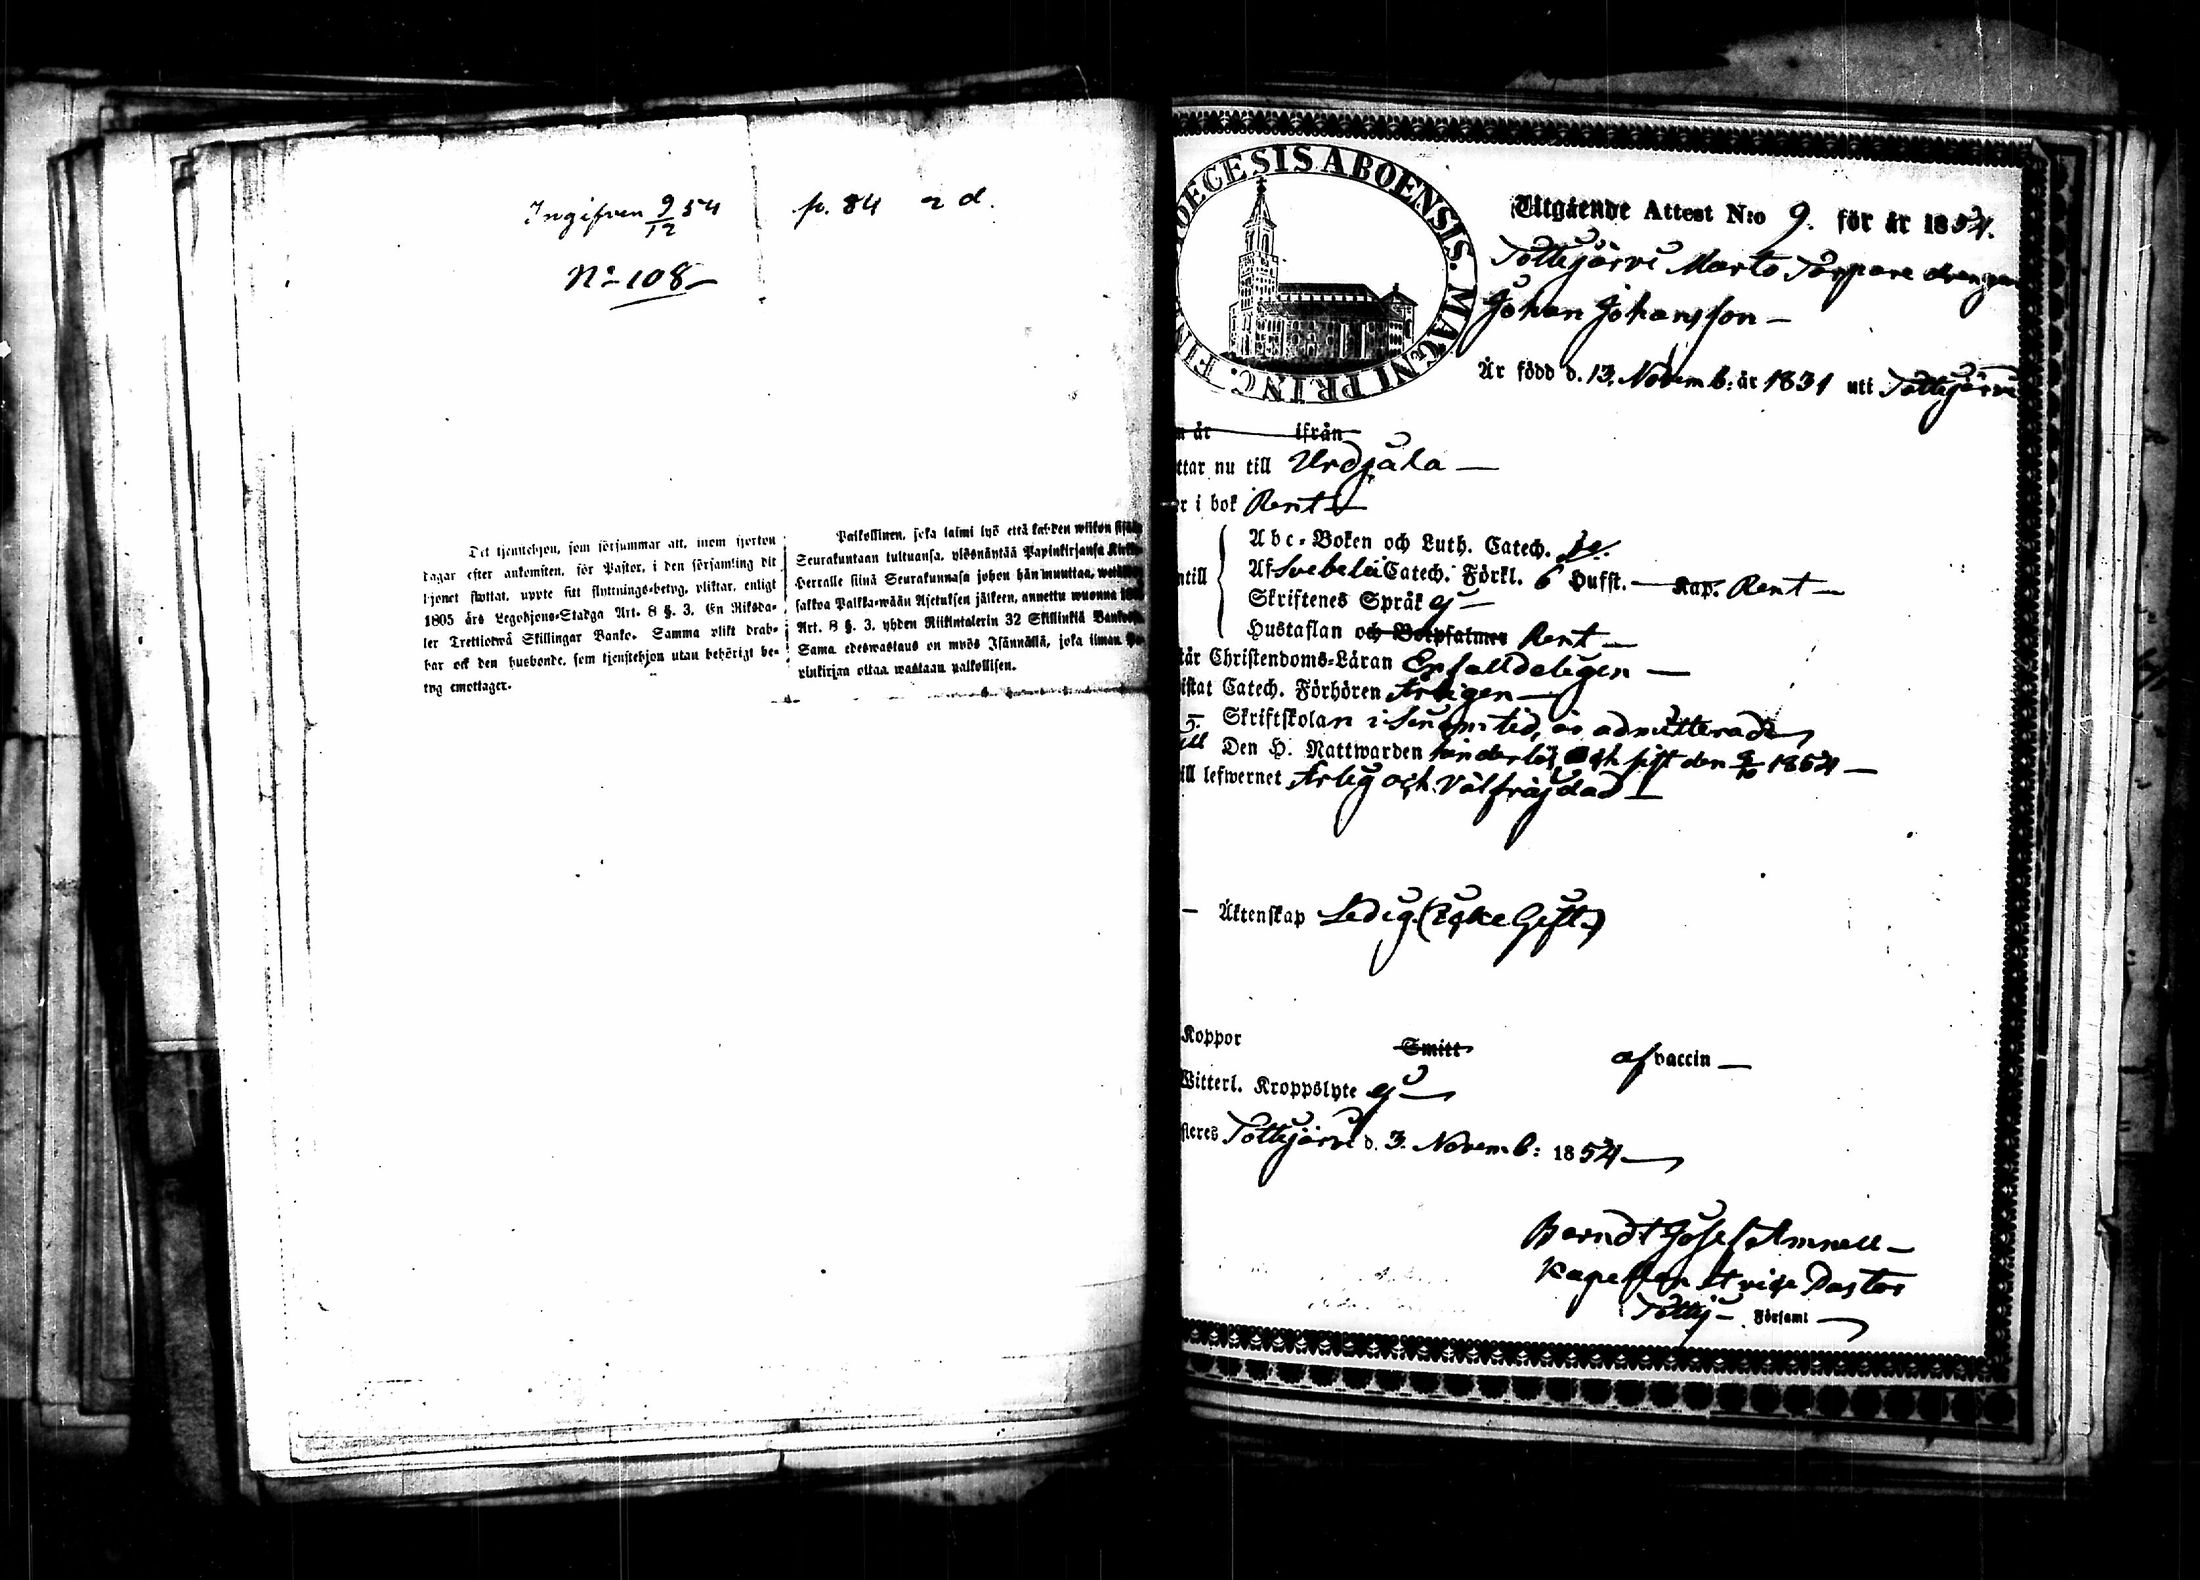 Ingifven 9/12 54 p. 84 2 d.
No 108
Det tjenstehjon, som försummar att, inom fjorton
dagar efter ankomsten, för Pastor, i den församling dit
hjonet flyttat, uppte sitt flyttnings-betyg, pliktar, enligt
1805 års Legohjons-Stadga Art. 8 §. 3. En Riksda-
ler Trettiotwå Skillingar Banko. Samma plikt drab-
bar ock den husbonde, som tjenstehjon utan behörigt be-
tyg emottager.
Palkollinen, joka laimi lyö että kahden wiikon sisällä
Seurakuntaan tultuansa, ylösnäyttää Papinkirjansa
Herralle siinä Seurakunnasa johon hän muuttaa,
sakkoa Palkka-wään Asetuksen jälkeen, annettu wuonna
Art. 8 §. 3. yhden Riikintalerin 32 Skillinkiä
Sama edeswastaus on myös Isännällä, joka ilman
pinkirjan ottaa wastaan palkollisen.
DIOECESIS ABOENSIS. MAGNI PRINC. FIN
Utgående Attest N:o 9. för år 1854.
Tottijärvi Marto Torpare drengen
Johan Johansson
Är född d. 13. Novemb: år 1831 uti Tottijärvi
n år ifrån
ttar nu till Urdjala
er i bok Rent
Abc-Boken och Luth. Catech. Ja.
Af Svebelii Catech. Förkl. 6 Hufst. Kap. Rent
ntill
Skriftenes Språk ej
Hustaflan och Botpsalmer Rent
tår Christendoms-Läran Enfalldeligen
istat Catech. Förhören Arligen
Skriftskolan i sinom tid, är admitterad
till Den H. Nattwarden hinderlös och sist den 1854
ill lefwernet Ärlig och Välfräjdad
Äktenskap Ledig (Icke Gift)
Koppor Smitt af vaccin
Witterl. Kroppslyte ej
steres Tottijärvi d. 3. Novemb: 1854
Berndt Josef Amnell
Kapellan Pastor
Tottij Församl